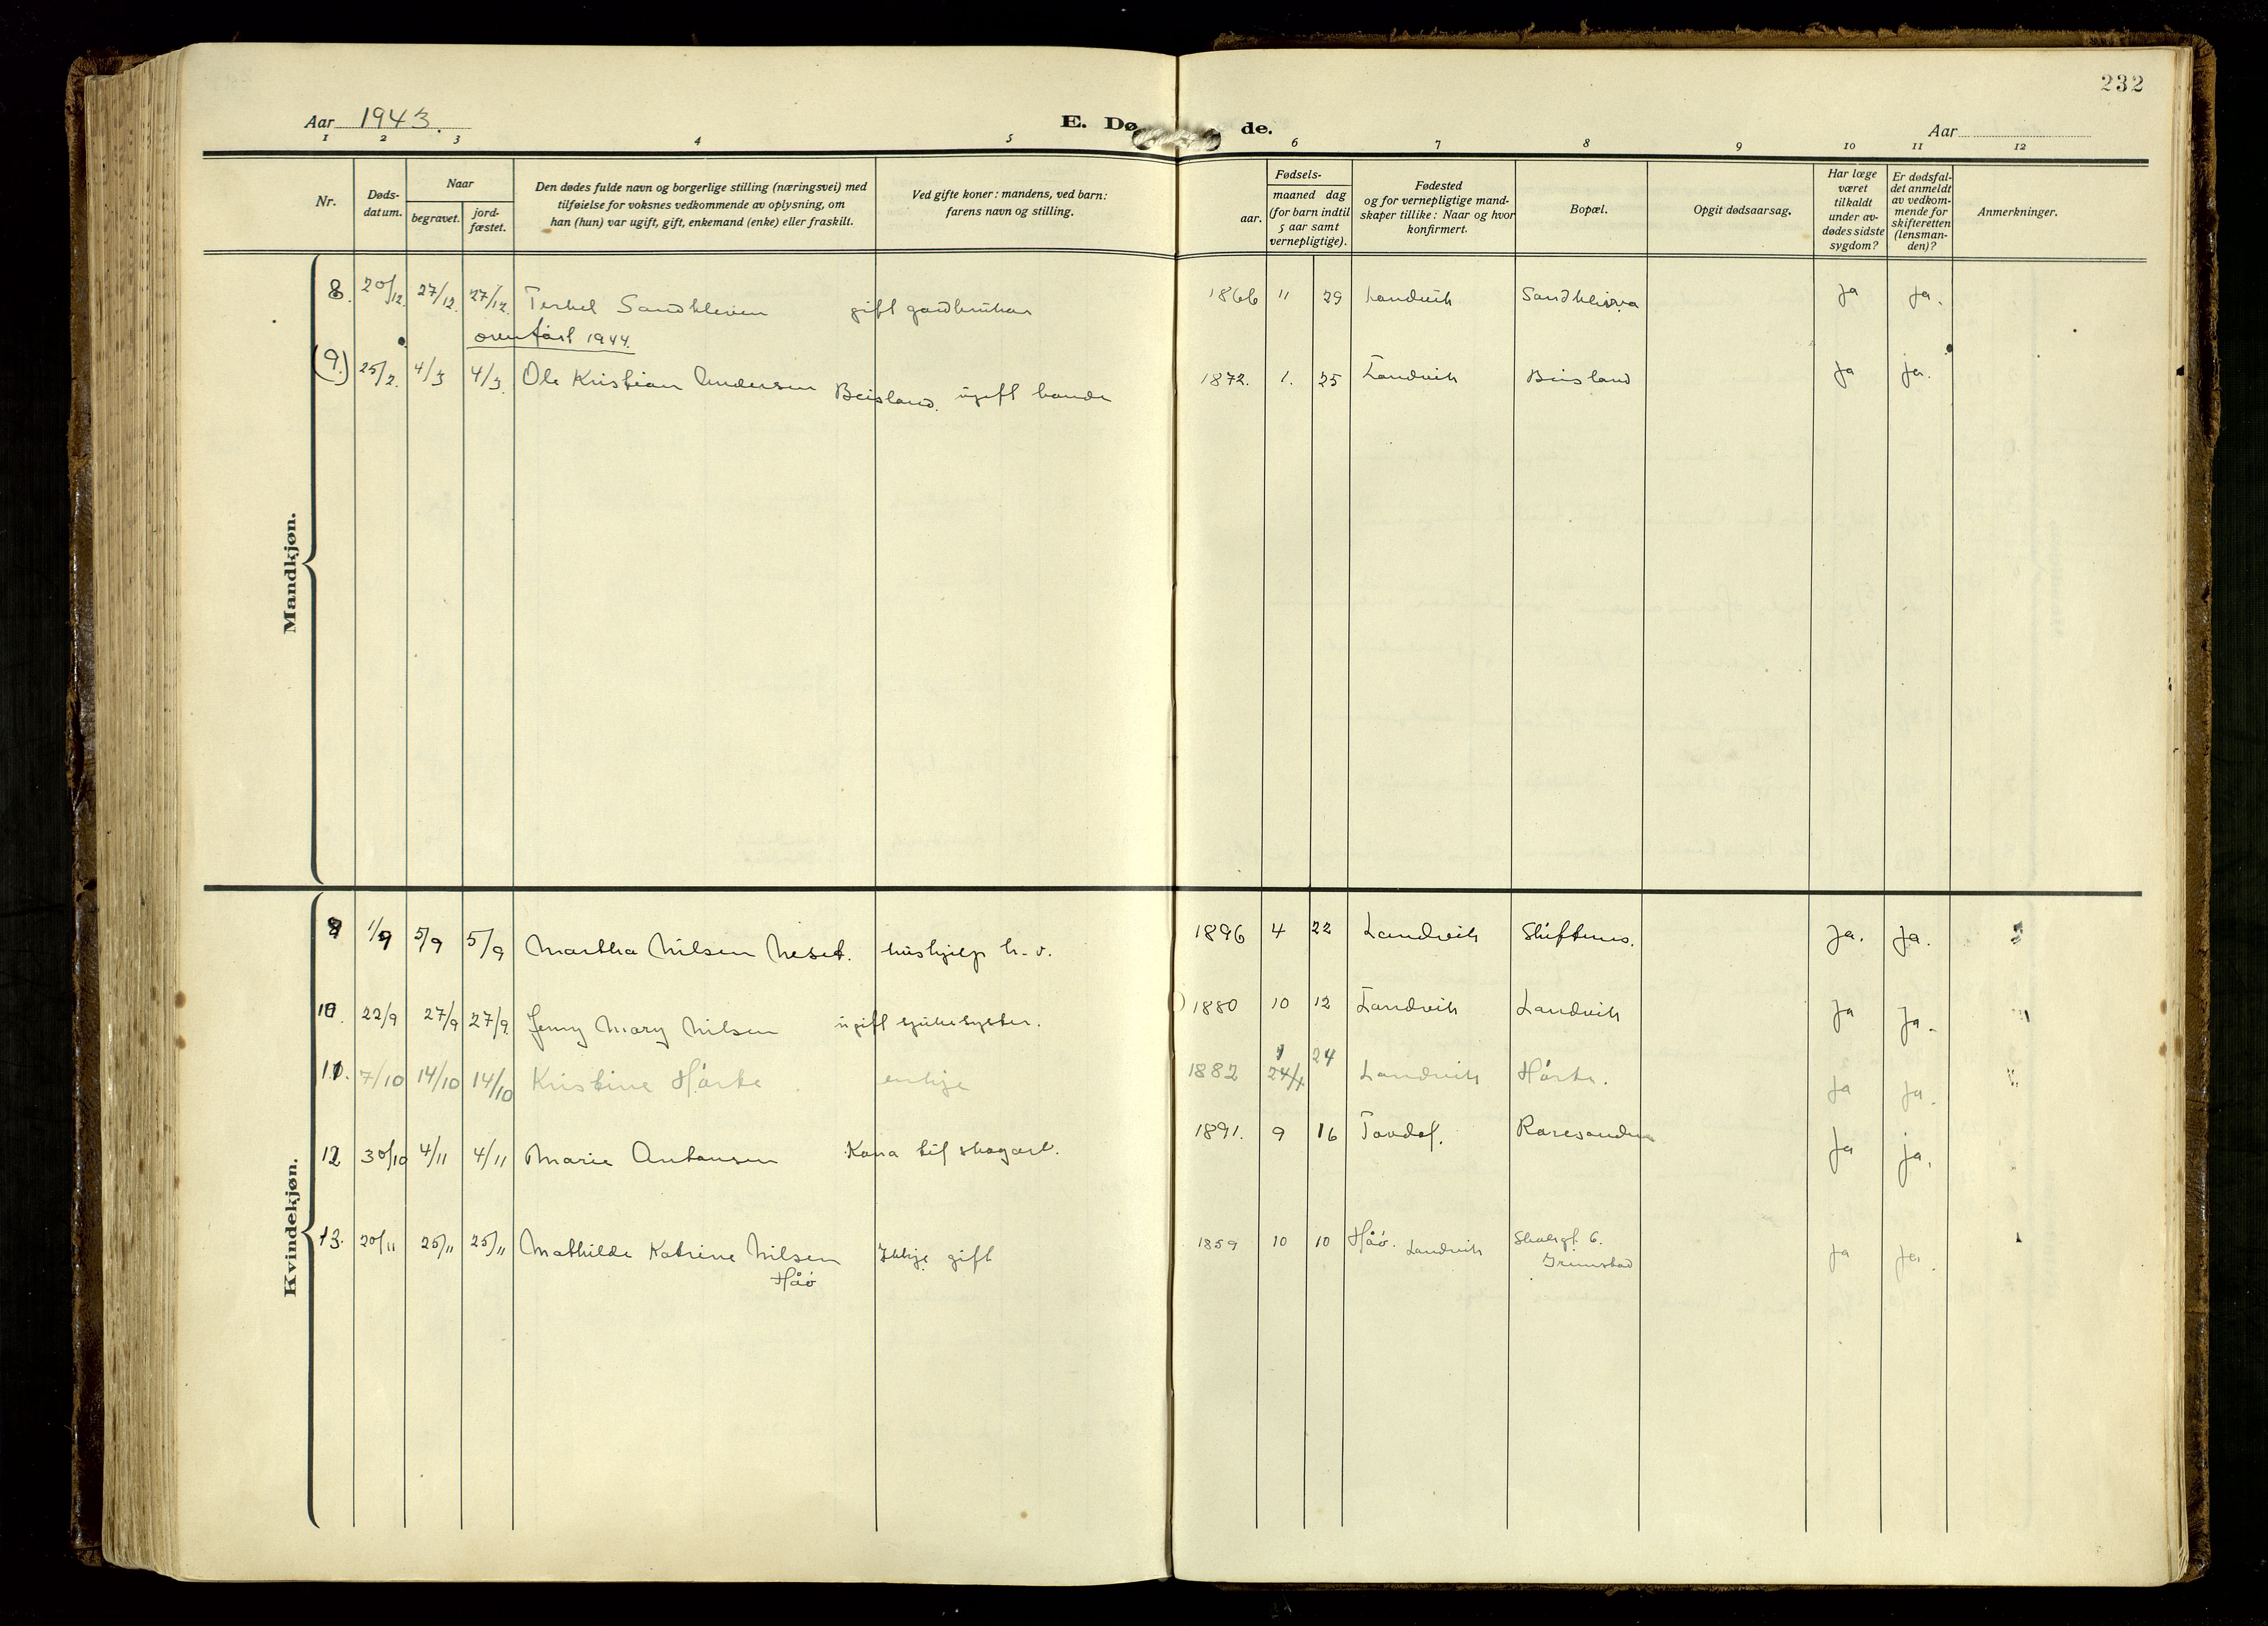 232
Aar 1943.
E. Dø de.
Aar
1 2 3 4 5 6 7 8 9 10 11 12
Nr.
Døds-
datum.
Naar
begravet.
jord-
fæstet.
Den dødes fulde navn og borgerlige stilling (næringsvei) med
tilføielse for voksnes vedkommende av oplysning, om
han (hun) var ugift, gift, enkemand (enke) eller fraskilt.
Ved gifte koner: mandens, ved barn:
farens navn og stilling.
Fødsels-
aar.
maaned dag
(for barn indtil
5 aar samt
vernepligtige).
Fødested
og for vernepligtige mand-
skaper tillike: Naar og hvor
konfirmert.
Bopæl.
Opgit dødsaarsag.
Har læge
været
tilkaldt
under av-
dødes sidste
sygdom?
Er dødsfal-
det anmeldt
av vedkom-
mende for
skifteretten
(lensman-
den)?
Anmerkninger.
Mandkjøn.
8. 20/12. 27/12. 27/12. Terkel Sandkleven gift gardbrukar 1866 11 29 Landvik Sandkleiva ja ja.
overført 1944.
(9.) 25/2. 4/3 4/3. Ole Kristian Andersen Beisland. ugift bonde 1872. 1. 25 Landvik Beisland ja ja.
Kvindekjøn.
9 1/9 5/9 5/9 Martha Nilsen Neset. hushjelp h.v. 1896 4 22 Landvik Skiftenes. ja. ja.
10. 22/9 27/9 27/9. Jenny Mary Nilsen ugift sjukesyster. 1880 10 12 Landvik Landvik ja ja.
11. 7/10 14/10 14/10 Kristine Hørte enkje 1882 24/1 1 24 Landvik Hørte. ja ja.
12 30/10 4/11 4/11 Marie Antonsen Kona til skogarb. 1891. 9 16 Tovdal. Roresanden ja ja.
13. 20/11 25/11 25/11 Mathilde Katrine Nilsen Ikkje gift 1859 10 10 Håø. Landvik 6. ja ja.
Håø Grimstad